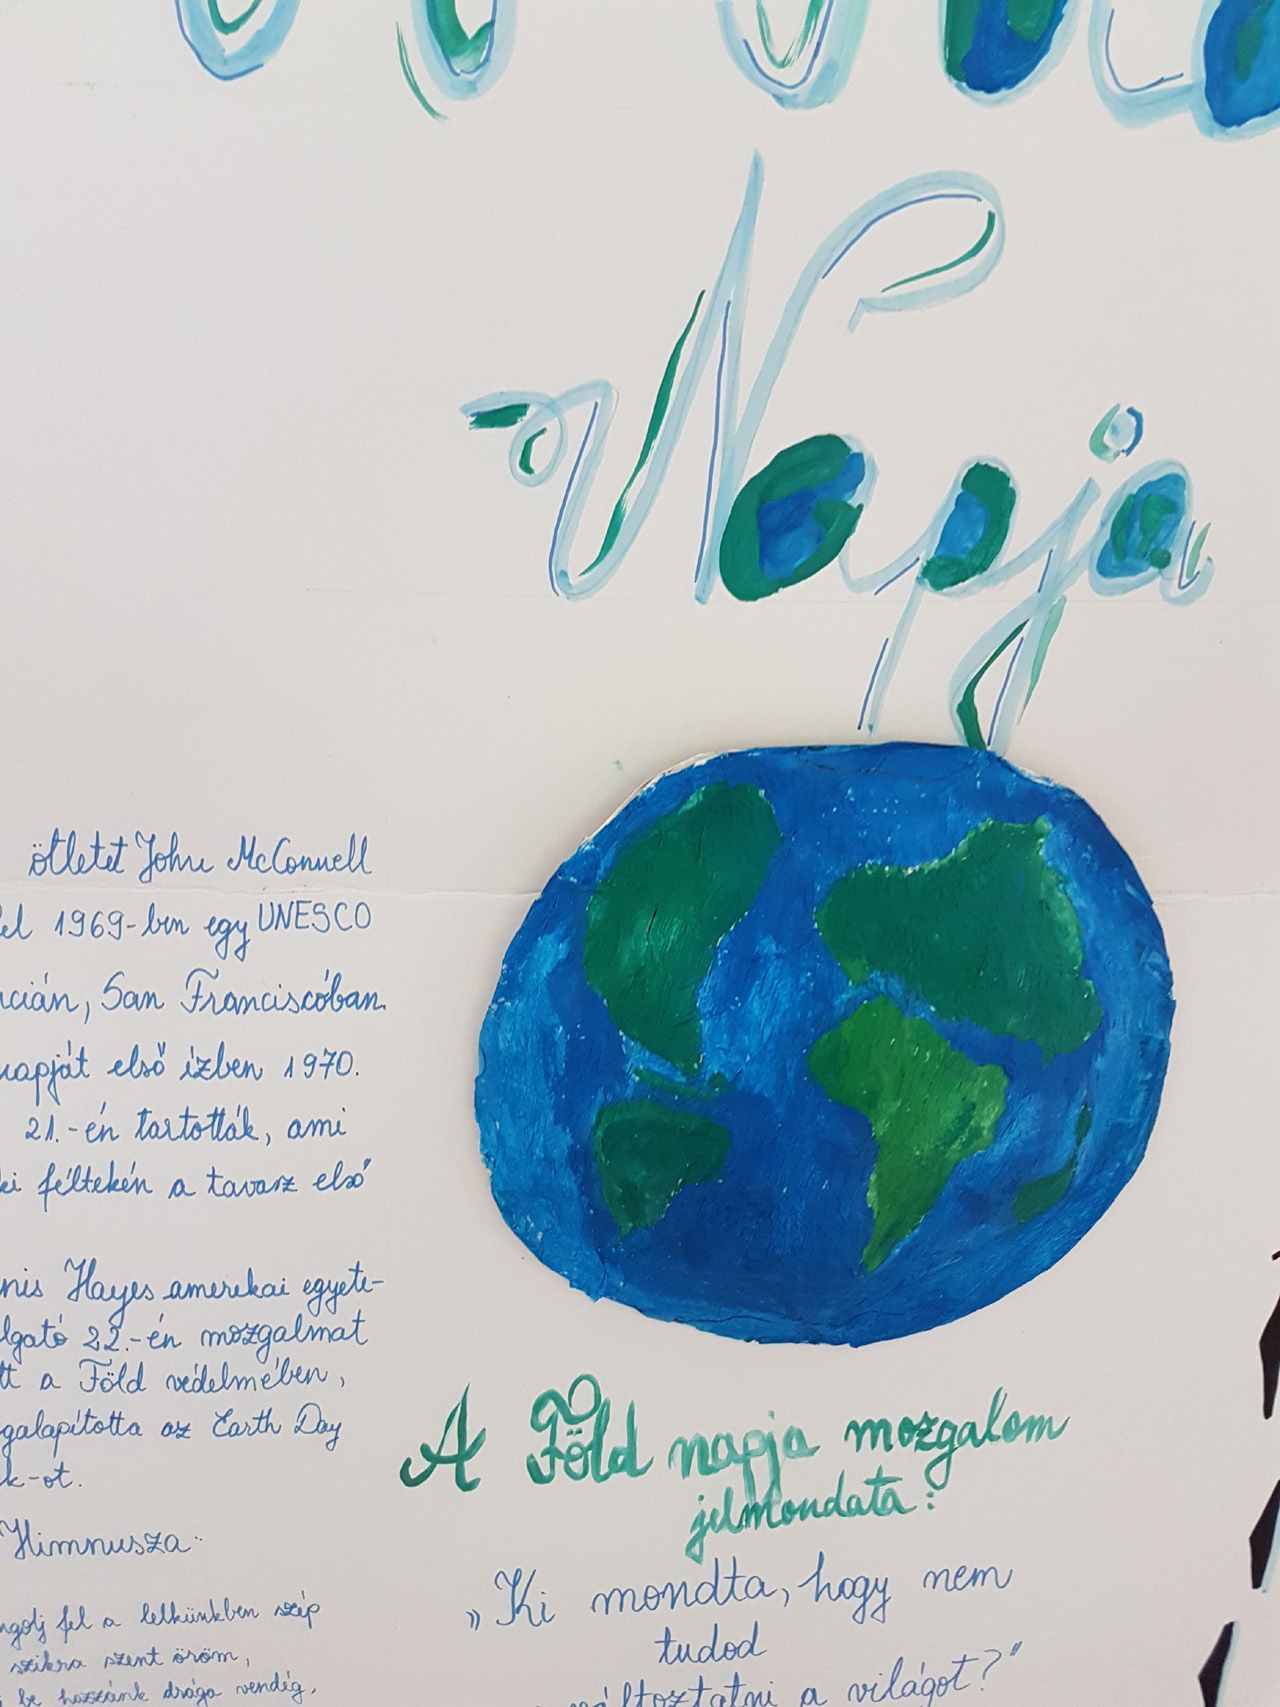 Napja
ötletet John McConnell
el 1969-ben egy UNESCO
cián, San Franciscóban.
napját első ízben 1970.
21.-én tartották, ami
ki féltekén a tavasz első
nis Hayes amerikai egyete-
lgató 22.-én mozgalmat
tt a Föld védelmében,
galapította az Earth Day
k-ot.
Himnusza:
ngolj fel a lelkünkben szép
szikra szent öröm,
be hozzánk drága vendég,
A Föld napja mozgalom
jelmondata:
„Ki mondta, hogy nem
tudod
változtatni a világot?"